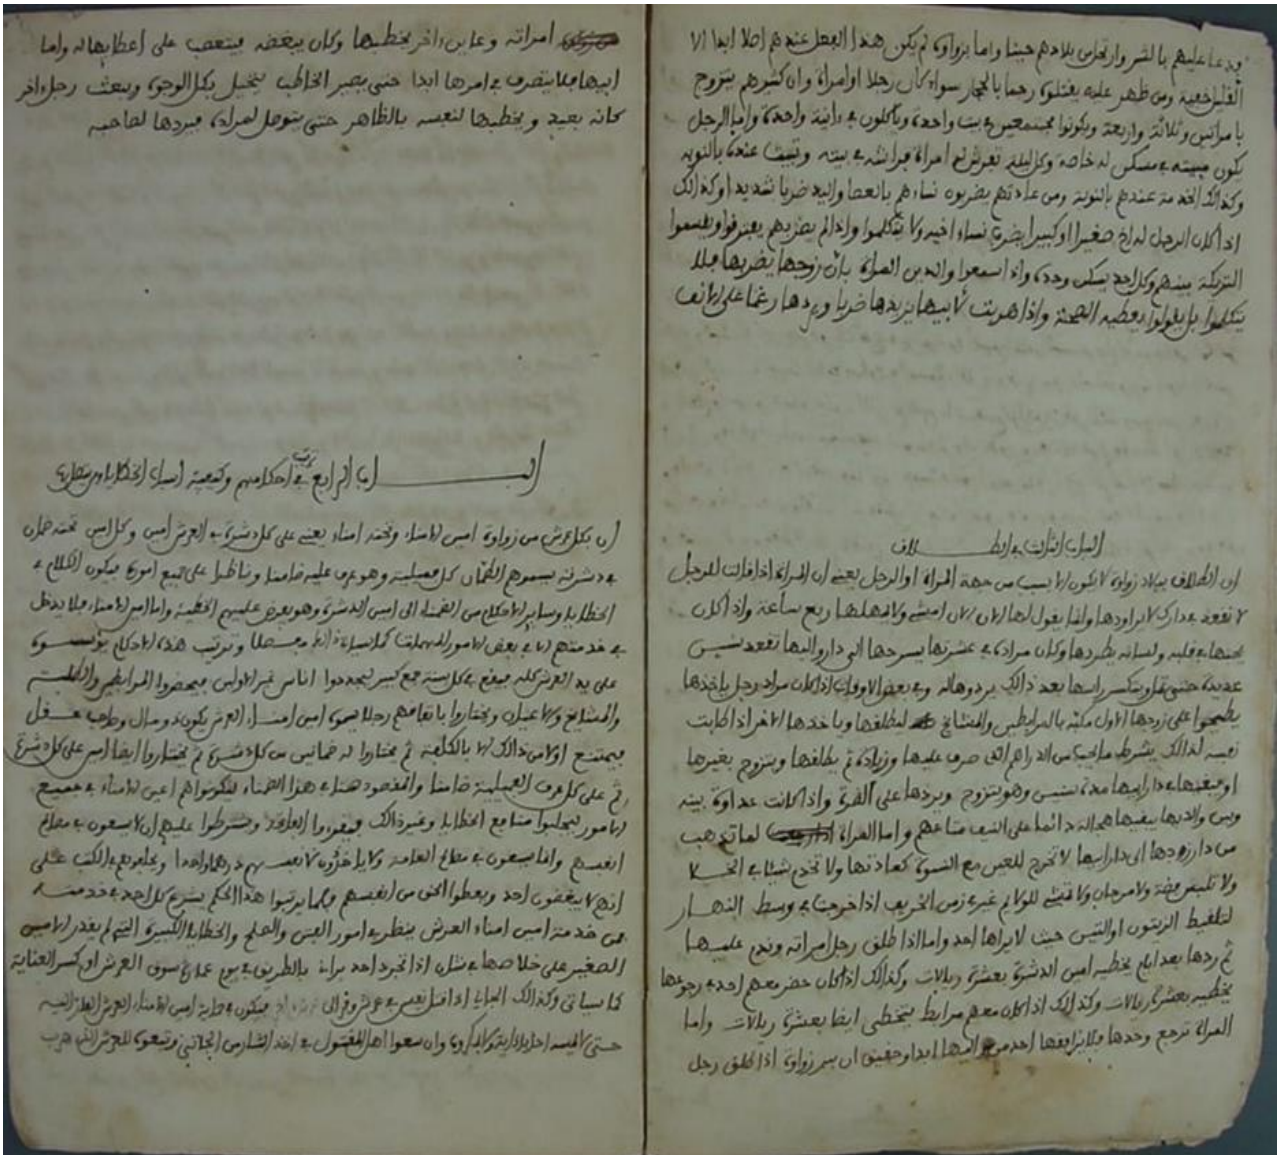 ودعا عليهم بالشر وارتحل من بلادهم حينا واما بزواوة لم يكن هذا الفعل عندهم اصلا ابدا الا
القليل خفية ومن ظهر عليه يقتلوه رجما بالحجار سواء كان رجلا او امراة وان كثيرهم يتزوج
بامراتين وثلاثة واربعة ويكونوا مجتمعين في بيت واحدة وياكلون في دانية واحدة واما الرجل
يكون مبيته في مسكن له خاصة وكل ليلة تفرش له امراة فراشه في بيته وتبيت عنده بالنوبه
وكذالك الخدمة عندهم بالنوبة ومن عادتهم يضربوه نساءهم بالعصا واليد ضربا شديدا وكذالك
اذا كان الرجل له اخ صغيرا او كبيرا يضرب نساء اخيه ولا يتكلموا واذا لم يضربهم يفترقوا ويقسموا
التركة بينهم وكل احد يسكن وحده واذا سمعوا والدين المراة بان زوجها يضربها فلا
يتكلموا بل يقولوا يعطيه الصحة واذا هربت لابيها يزيدها ضربا ويردها رغما على الانف
الباب الثالث في الطلاق
ان الطلاق ببلاد زواوة لا يكون الا بسبب من جهة المراة او الرجل يعني ان المراة اذا قالت للرجل
لا نقعد في دارك لا يراودها وانما يقول لها الان الان امشي ولا يمهلها ربع ساعة واذا كان
يحبها في قلبه ولسانه يطردها وكان مراده في عشرتها يسرحها الى دار واليها تقعد سنين
عديدة حتى يتكسر راسها بعد ذالك يردوها له وفي بعض الاوقات اذا كان مراد رجل ياخذها
يطيحوا على زوجها الاول مكبه بالمرابطين والمشايخ ليطلقها وياخدها الاخر اذا طابت
نفسه لذالك يشرط ما يحب من الدراهم التي صرف عليها وزيادة ثم يطلقها ويتزوج بغيرها
او يبقيها في دار ابيها مدة سنين وهو يتزوج ويردها على الضرة واذا كانت عداوة بينه
وبين والديها يبقيها هجالة دائما على السيف متاعهم واما المراة لما تذهب
من دار زوجها الى دار ابيها لا تخرج للعين مع النسوة كعادتها ولا تخدم شيئا في الخلا
ولا تلبس فضة ولا مرجان ولا تمشي للولايم غير في زمن الخريف اذا خرجت في وسط النهار
لتلقيط الزيتون او التين حيث لا يراها احد واما اذا طلق رجل امراته وندم عليها
ثم ردها بعد ايام يخطيه امين الدشرة بعشرة ريالات وكذالك اذا كان حضر معهم احد في رجوعها
يخطيه بعشرة ريالات وكذالك اذا كان معهم مرابط يتخطى ايضا بعشرة ريالات واما
المراة ترجع وحدها فلا يرافقها احد من واليها ابدا وحقيق ان بين زواوة اذا طلق رجل
امراته وعاين اخر يخطبها وكان يبغضه فيتعصب على اعطايها له واما
ابيها فلا يتصرف في امرها ابدا حتى يصير الخاطب يتحيل بكل الوجوه ويبعث رجل اخر
كانه بعيد ويخطبها لنفسه بالظاهر حتى يتوصل لمراده فيردها لصاحبه
الباب الرابع في ترتيب احكامهم وكيفية اسباب الخطايا
ان بكل عرش من زواوة امين الامناء وتحته امناء يعني على كل دشرة في العرش امين وكل امين تحته ضمان
في دشرته يسموهم الطمان كل فميلية وهو عرف عليه ضامنا وناظرا على جميع اموره فيكون الكلام في
الخطايا وساير الاحكام من الضمناء الى امين الدشرة وهو يعرض عليهم الخطية واما امين الامناء فلا يدخل
في خدمتهم الا في بعض الامور المهملة كما سياتي مفصلا وترتيب هذه الاحكام يؤسسوه
على يد العرش كله فيقع في كل سنة جمع كبير ليجددوا اناس غير الاولين فيحضروا المرابطين والطلبة
والمشايخ والاعيان ويختاروا باتفاقهم رجلا يسموه امين امناء العرش يكون ذو مال وصاحب عقل
فيمتنع اولا من ذالك الا بالكلفة ثم يختاروا له ضمانين من كل دشرة ثم يختاروا ايضا امين على كل دشرة
ثم على كل عرف الفميلية ضامنا والمقصود هنا في هذا الضمناء ليكونوا هم اعين الامناء في جميع
الامور ليجلبوا منافع الخطايا وغير ذالك فيقروا الفاتحة ويشرطوا عليهم ان لا يسعون في مصالح
انفسهم وانما يسعون في مصالح العامة ولا ياخذون لانفسهم درهما واحدا ويحلفوهم في الكتب على
انهم لا يبغضون احد ويعطوا الحق من انفسهم فلما يرتبوا هذا الحكم يشرع كل احد في خدمته
فمن خدمة امين امناء العرش ينظر في امور الفتن والصلح والخطايا الكبيرة التي لم يقدر الامين
الصغير على خلاصها مثل اذا تجرد احد براني بالطريق في يوم عمارة سوق العرش او كسر العناية
كما سياتي وكذالك الجاني اذا قتل نفس في عرش وفر الى عرش اخر فيكون في حماية امين الامناء